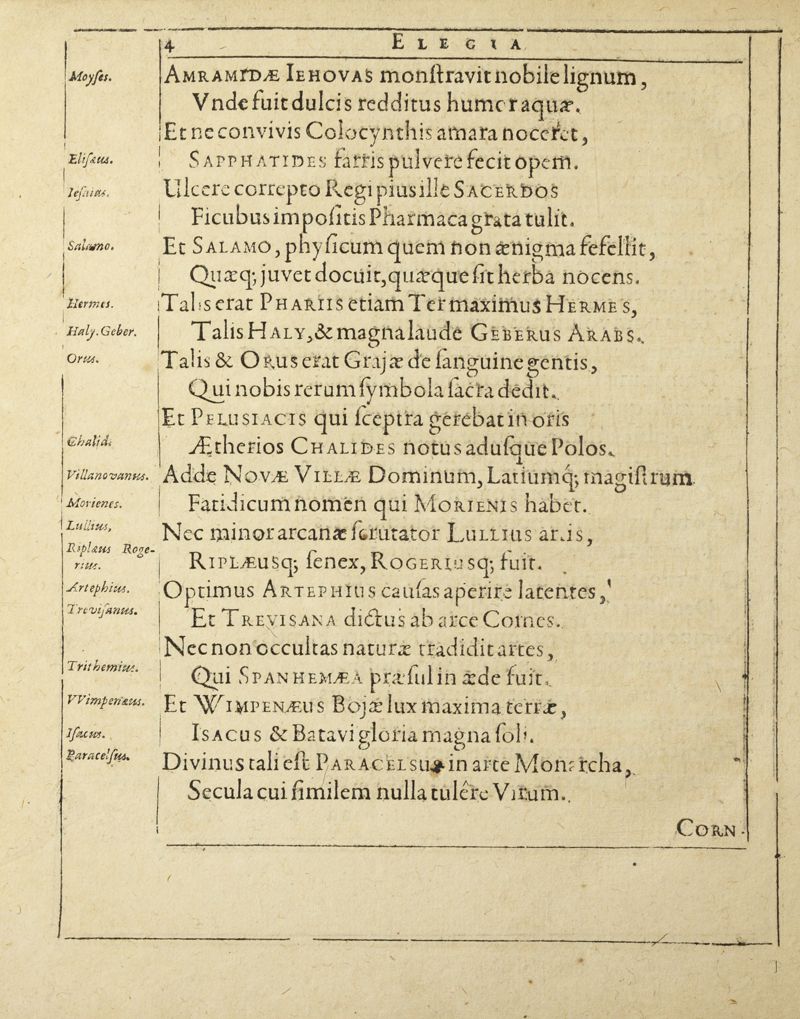 4
ELEGIA
Moyses.
AMRAMIDÆ IEHOVAS monſtravit nobile lignum,
Vnde fuit dulcis redditus humor aquæ.
Et ne convivis Colocynthis amara noceret,
Eliſæus.
SAPPHATIDES farris pulvere fecit opem.
Ieſaias.
Ulcere correpto Regi pius ille SACERDOS
Ficubus impoſitis Pharmaca grata tulit.
Salomo.
Et SALAMO, phyſicum quem non ænigma fefellit,
Quæq; juvet docuit, quæque ſit herba nocens.
Hermes.
Talis erat PHARIIS etiam Ter maximus HERMES,
Haly. Geber.
Talis HALY, & magna laude GEBERUS ARABS.
Orus.
Talis & ORUS erat Grajæ de ſanguine gentis,
Qui nobis rerum ſymbola ſacra dedit.
Et PELUSIACIS qui ſceptra gerebat in oris
Chalid.
Ætherios CHALIDES notus aduſque Polos.
Villanovanus.
Adde NOVÆ VILLÆ Dominum, Latiumq; magiſtrum
Morienes.
Fatidicum nomen qui MORIENIS habet.
Lullius,
Nec minor arcanæ ſcrutator LULLIUS artis,
Riplæus Rogerius.
RIPLÆUSq; ſenex, ROGERIUSq; fuit.
Artephius.
Optimus ARTEPHIUS cauſas aperire latentes,
Treviſanus.
Et TREVISANA dictus ab arce Comes.
Nec non occultas naturæ tradidit artes,
Trithemius.
Qui SPANHEMÆA præſul in æde fuit.
VVimpenæus.
Et WIMPENÆUS Bojæ lux maxima terræ,
Iſacus.
ISACUS & Batavi gloria magna ſoli.
Paracelſus.
Divinus tali eſt PARACELSUS in arte Monarcha,
Secula cui ſimilem nulla tulêre Virum.
CORN-